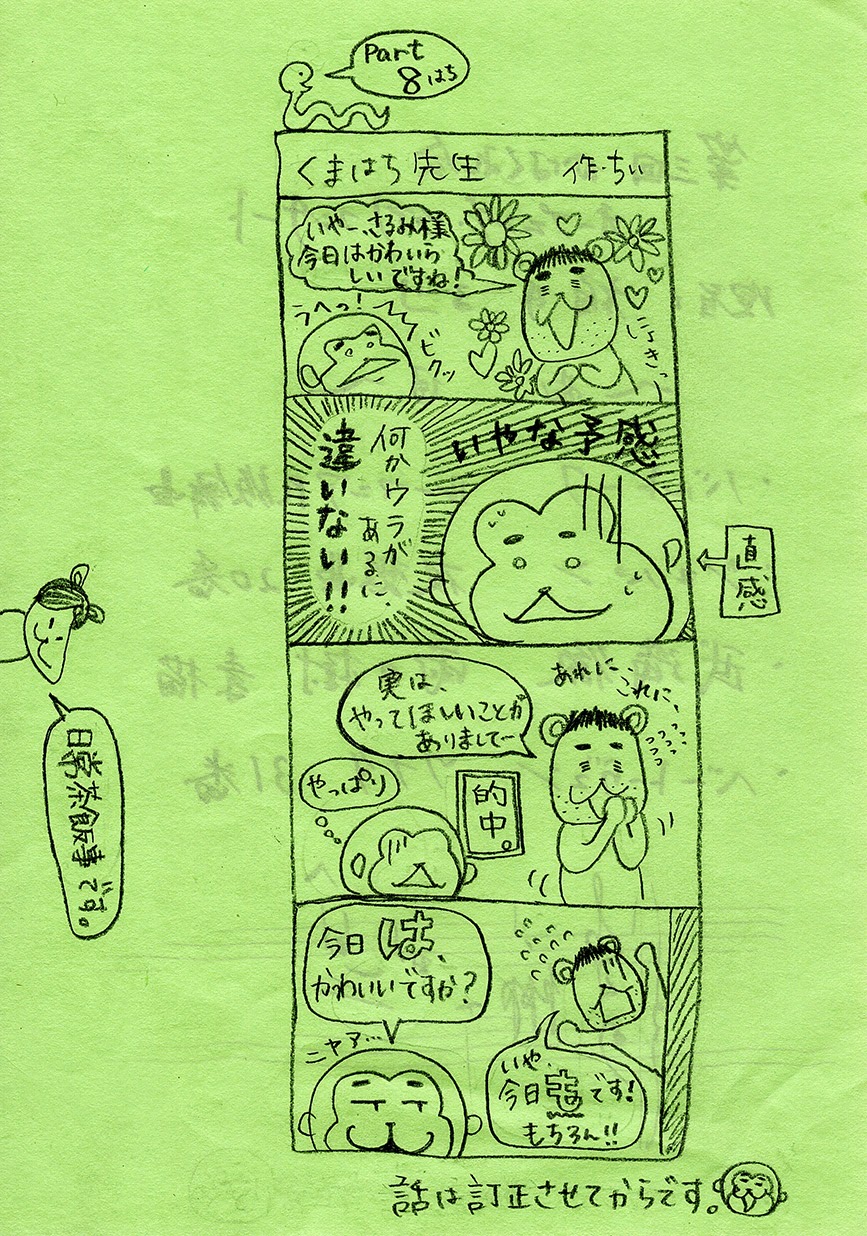 Part
8はち
くまはち先生　作・ちぃ
いやー、さるみ様
今日はかわいら
しいですね！
うへっ！
ビクッ
にょきっ
いやな予感
何かウラが
あるに、
違いない！！
直感
実は、
やってほしいことが
ありましてー
あれに、
これに、
やっぱり
的中。
日常茶飯事です。
今日は、
かわいいですか？
ニヤア…
いや、
今日もです！
もちろん！！
話は訂正させてからです。